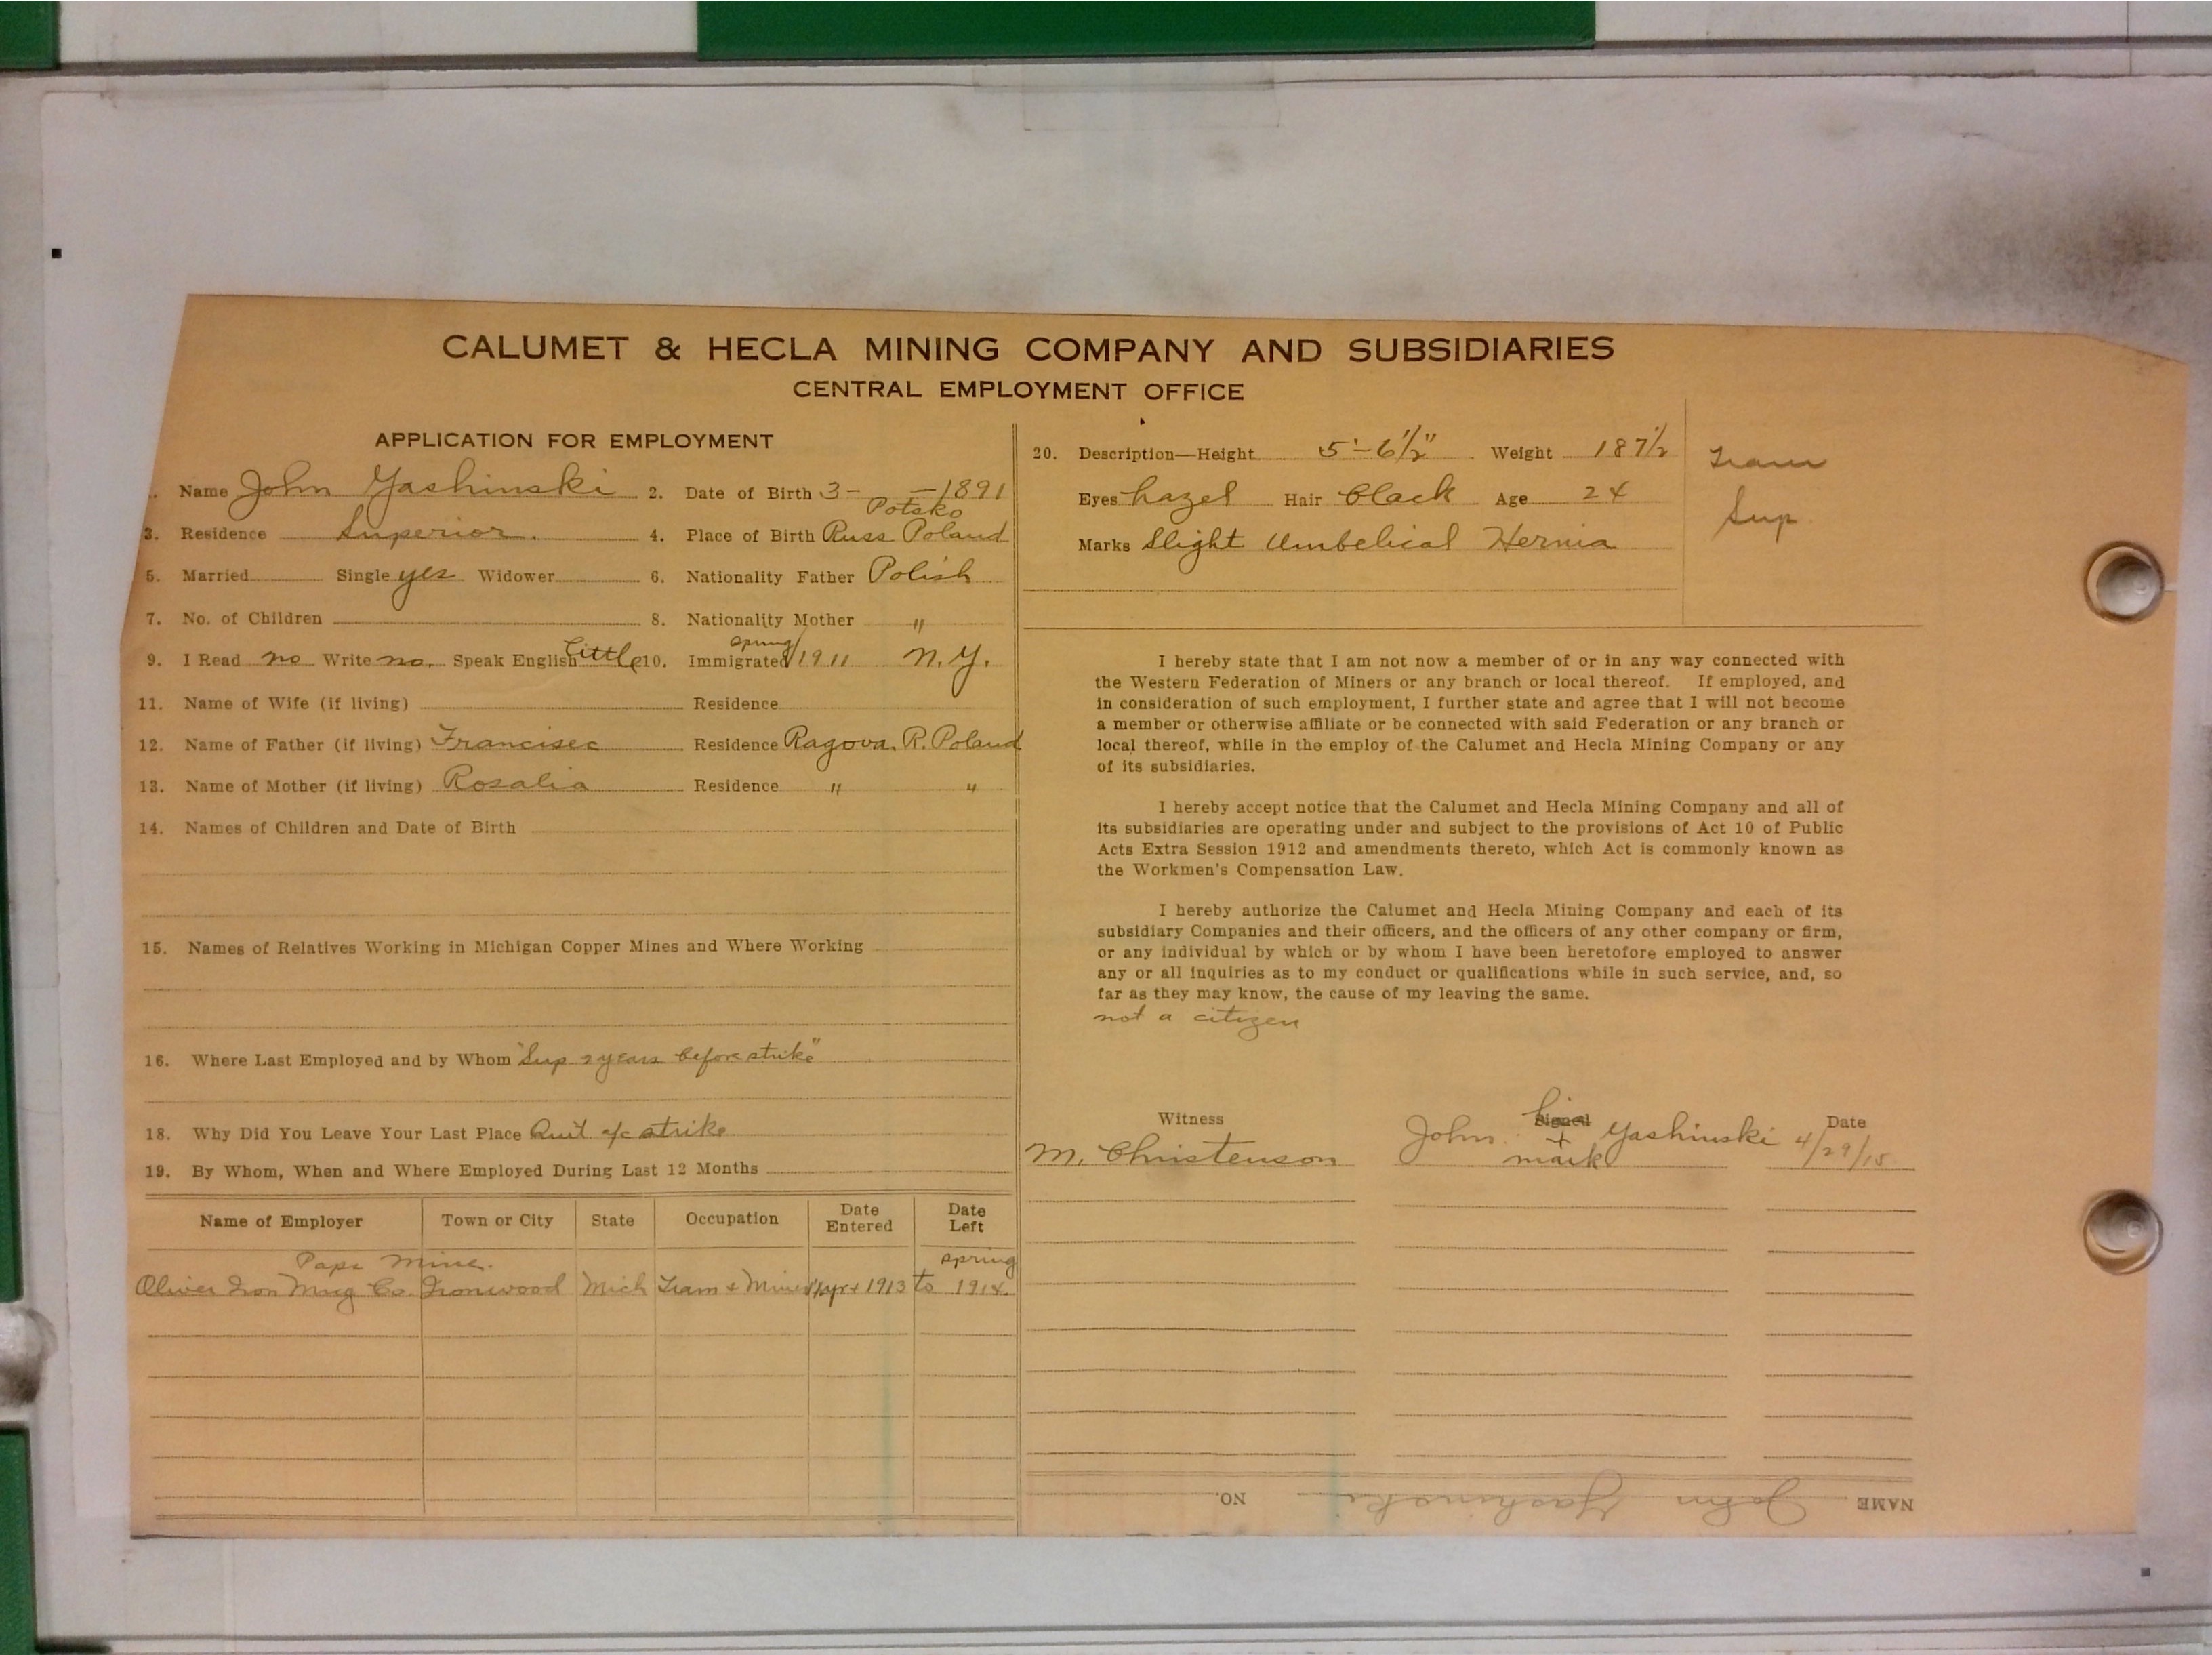 CALUMET & HECLA MINING COMPANY AND SUBSIDIARIES
CENTRAL EMPLOYMENT OFFICE
APPLICATION FOR EMPLOYMENT
Name John Yashinski 2. Date of Birth 3- -1891
Potsko
3. Residence Superior. 4. Place of Birth Russ Poland
5. Married Single yes Widower 6. Nationality Father Polish
7. No. of Children 8. Nationality Mother "
spring
9. I Read no Write no. Speak English little 10. Immigrated/1911 N.Y.
11. Name of Wife (if living) Residence
12. Name of Father (if living) Francisec Residence Ragova, R. Poland
13. Name of Mother (if living) Rosalia Residence " "
14. Names of Children and Date of Birth
15. Names of Relatives Working in Michigan Copper Mines and Where Working
16. Where Last Employed and by Whom "Sup 2 years before strike"
18. Why Did You Leave Your Last Place Quit a/c strike
19. By Whom, When and Where Employed During Last 12 Months
Name of Employer Town or City State Occupation Date Entered Date Left
Paps Mine. spring
Oliver Iron Mng Co. Ironwood Mich Tram & Mine 1yr+ 1913 to 1914.
20. Description—Height 5'-6½" Weight 187½
Eyes hazel Hair black Age 24
Marks Slight Umbelical Hernia
Tram
Sup
I hereby state that I am not now a member of or in any way connected with
the Western Federation of Miners or any branch or local thereof. If employed, and
in consideration of such employment, I further state and agree that I will not become
a member or otherwise affiliate or be connected with said Federation or any branch or
local thereof, while in the employ of the Calumet and Hecla Mining Company or any
of its subsidiaries.
I hereby accept notice that the Calumet and Hecla Mining Company and all of
its subsidiaries are operating under and subject to the provisions of Act 10 of Public
Acts Extra Session 1912 and amendments thereto, which Act is commonly known as
the Workmen's Compensation Law.
I hereby authorize the Calumet and Hecla Mining Company and each of its
subsidiary Companies and their officers, and the officers of any other company or firm,
or any individual by which or by whom I have been heretofore employed to answer
any or all inquiries as to my conduct or qualifications while in such service, and, so
far as they may know, the cause of my leaving the same.
not a citizen
Witness Signed Date
his
M. Christenson John + Yashinski 4/29/15
mark
NAME John Yashinski NO.